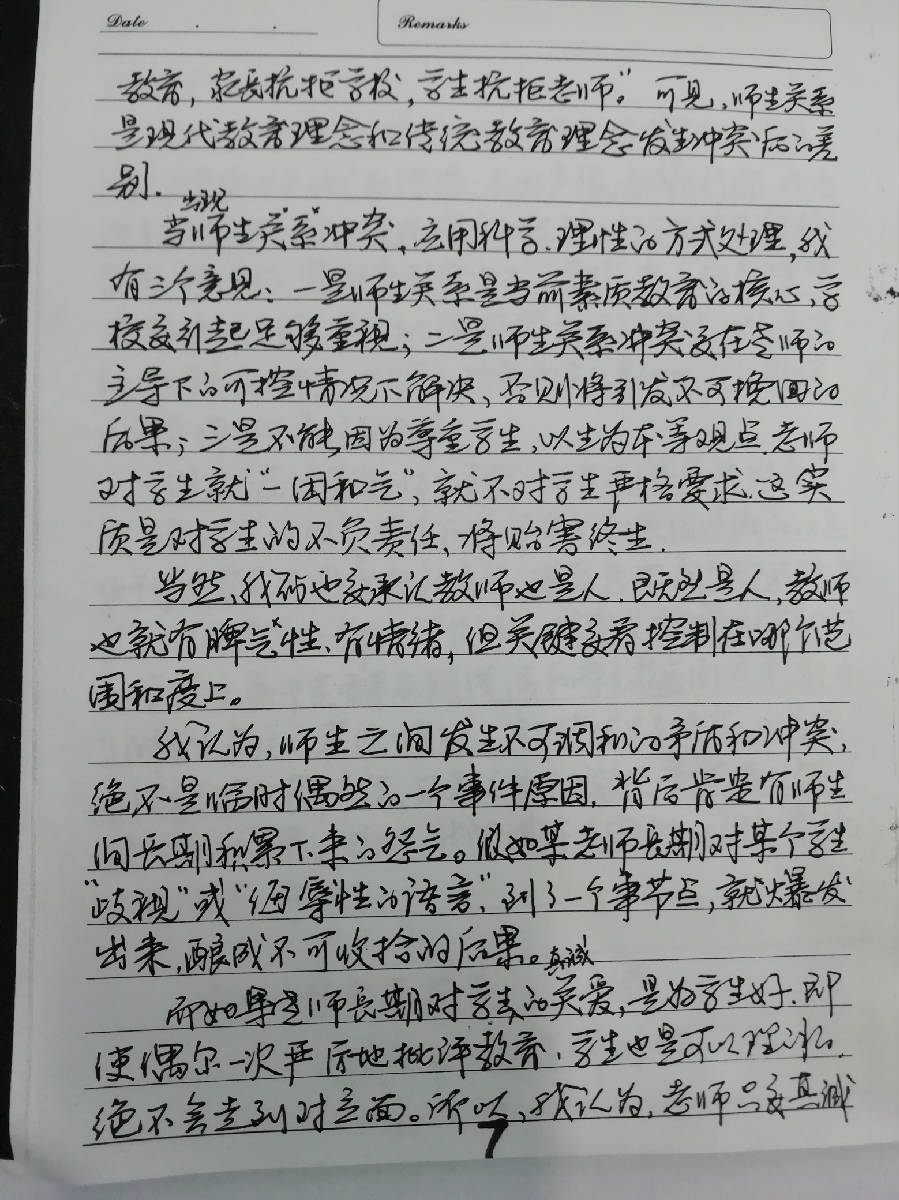 Date . .
Remarks
教育，家长抗拒学校，学生抗拒老师。”可见，师生关系
是现代教育理念和传统教育理念发生冲突后的差
别.
出现
当师生关系冲突、应用科学、理性的方式处理，我
有三个意见：一是师生关系是当前素质教育的核心，学
校要引起足够重视；二是师生关系冲突要在老师的
主导下的可控情况下解决、否则将引发不可挽回的
后果；三是不能因为尊重学生，以生为本等观点.老师
对学生就“一团和气”，就不对学生严格要求.这实
质是对学生的不负责任、将贻害终生.
当然、我们也要承认教师也是人.既然是人，教师
也就有脾气性、有情绪，但关键要看控制在哪个范
围和度上。
我认为，师生之间发生不可调和的矛盾和冲突，
绝不是临时偶然的一个事件原因.背后肯定有师生
间长期积累下来的怨气。假如某老师长期对某个学生
“歧视”或“侮辱性的语言”，到了一个事节点，就爆发
出来，酿成不可收拾的后果。
真诚
而如果老师长期对学生的关爱，是为学生好.即
使偶尔一次严厉地批评教育、学生也是可以理
绝不会走到对立面。所以，我认为，老师只要真诚
7